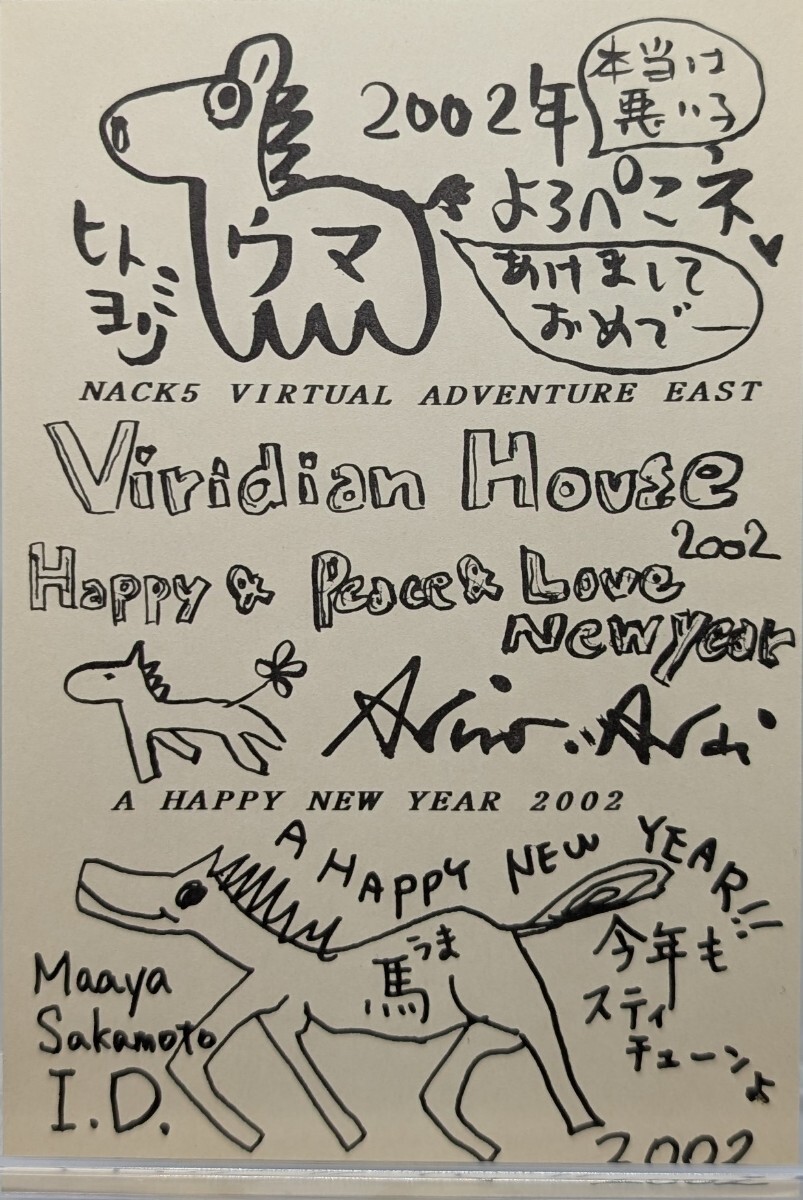 2002年
本当は
悪い子
よろぺこネ
ヒト
ヨリミ
ウマ
あけまして
おめでー
NACK5 VIRTUAL ADVENTURE EAST
Viridian House
2002
Happy & Peace & Love
New year
A HAPPY NEW YEAR 2002
A HAPPY NEW YEAR!!
うま
馬
今年も
スティ
チューンよ
Maaya
Sakamoto
I.D.
2002